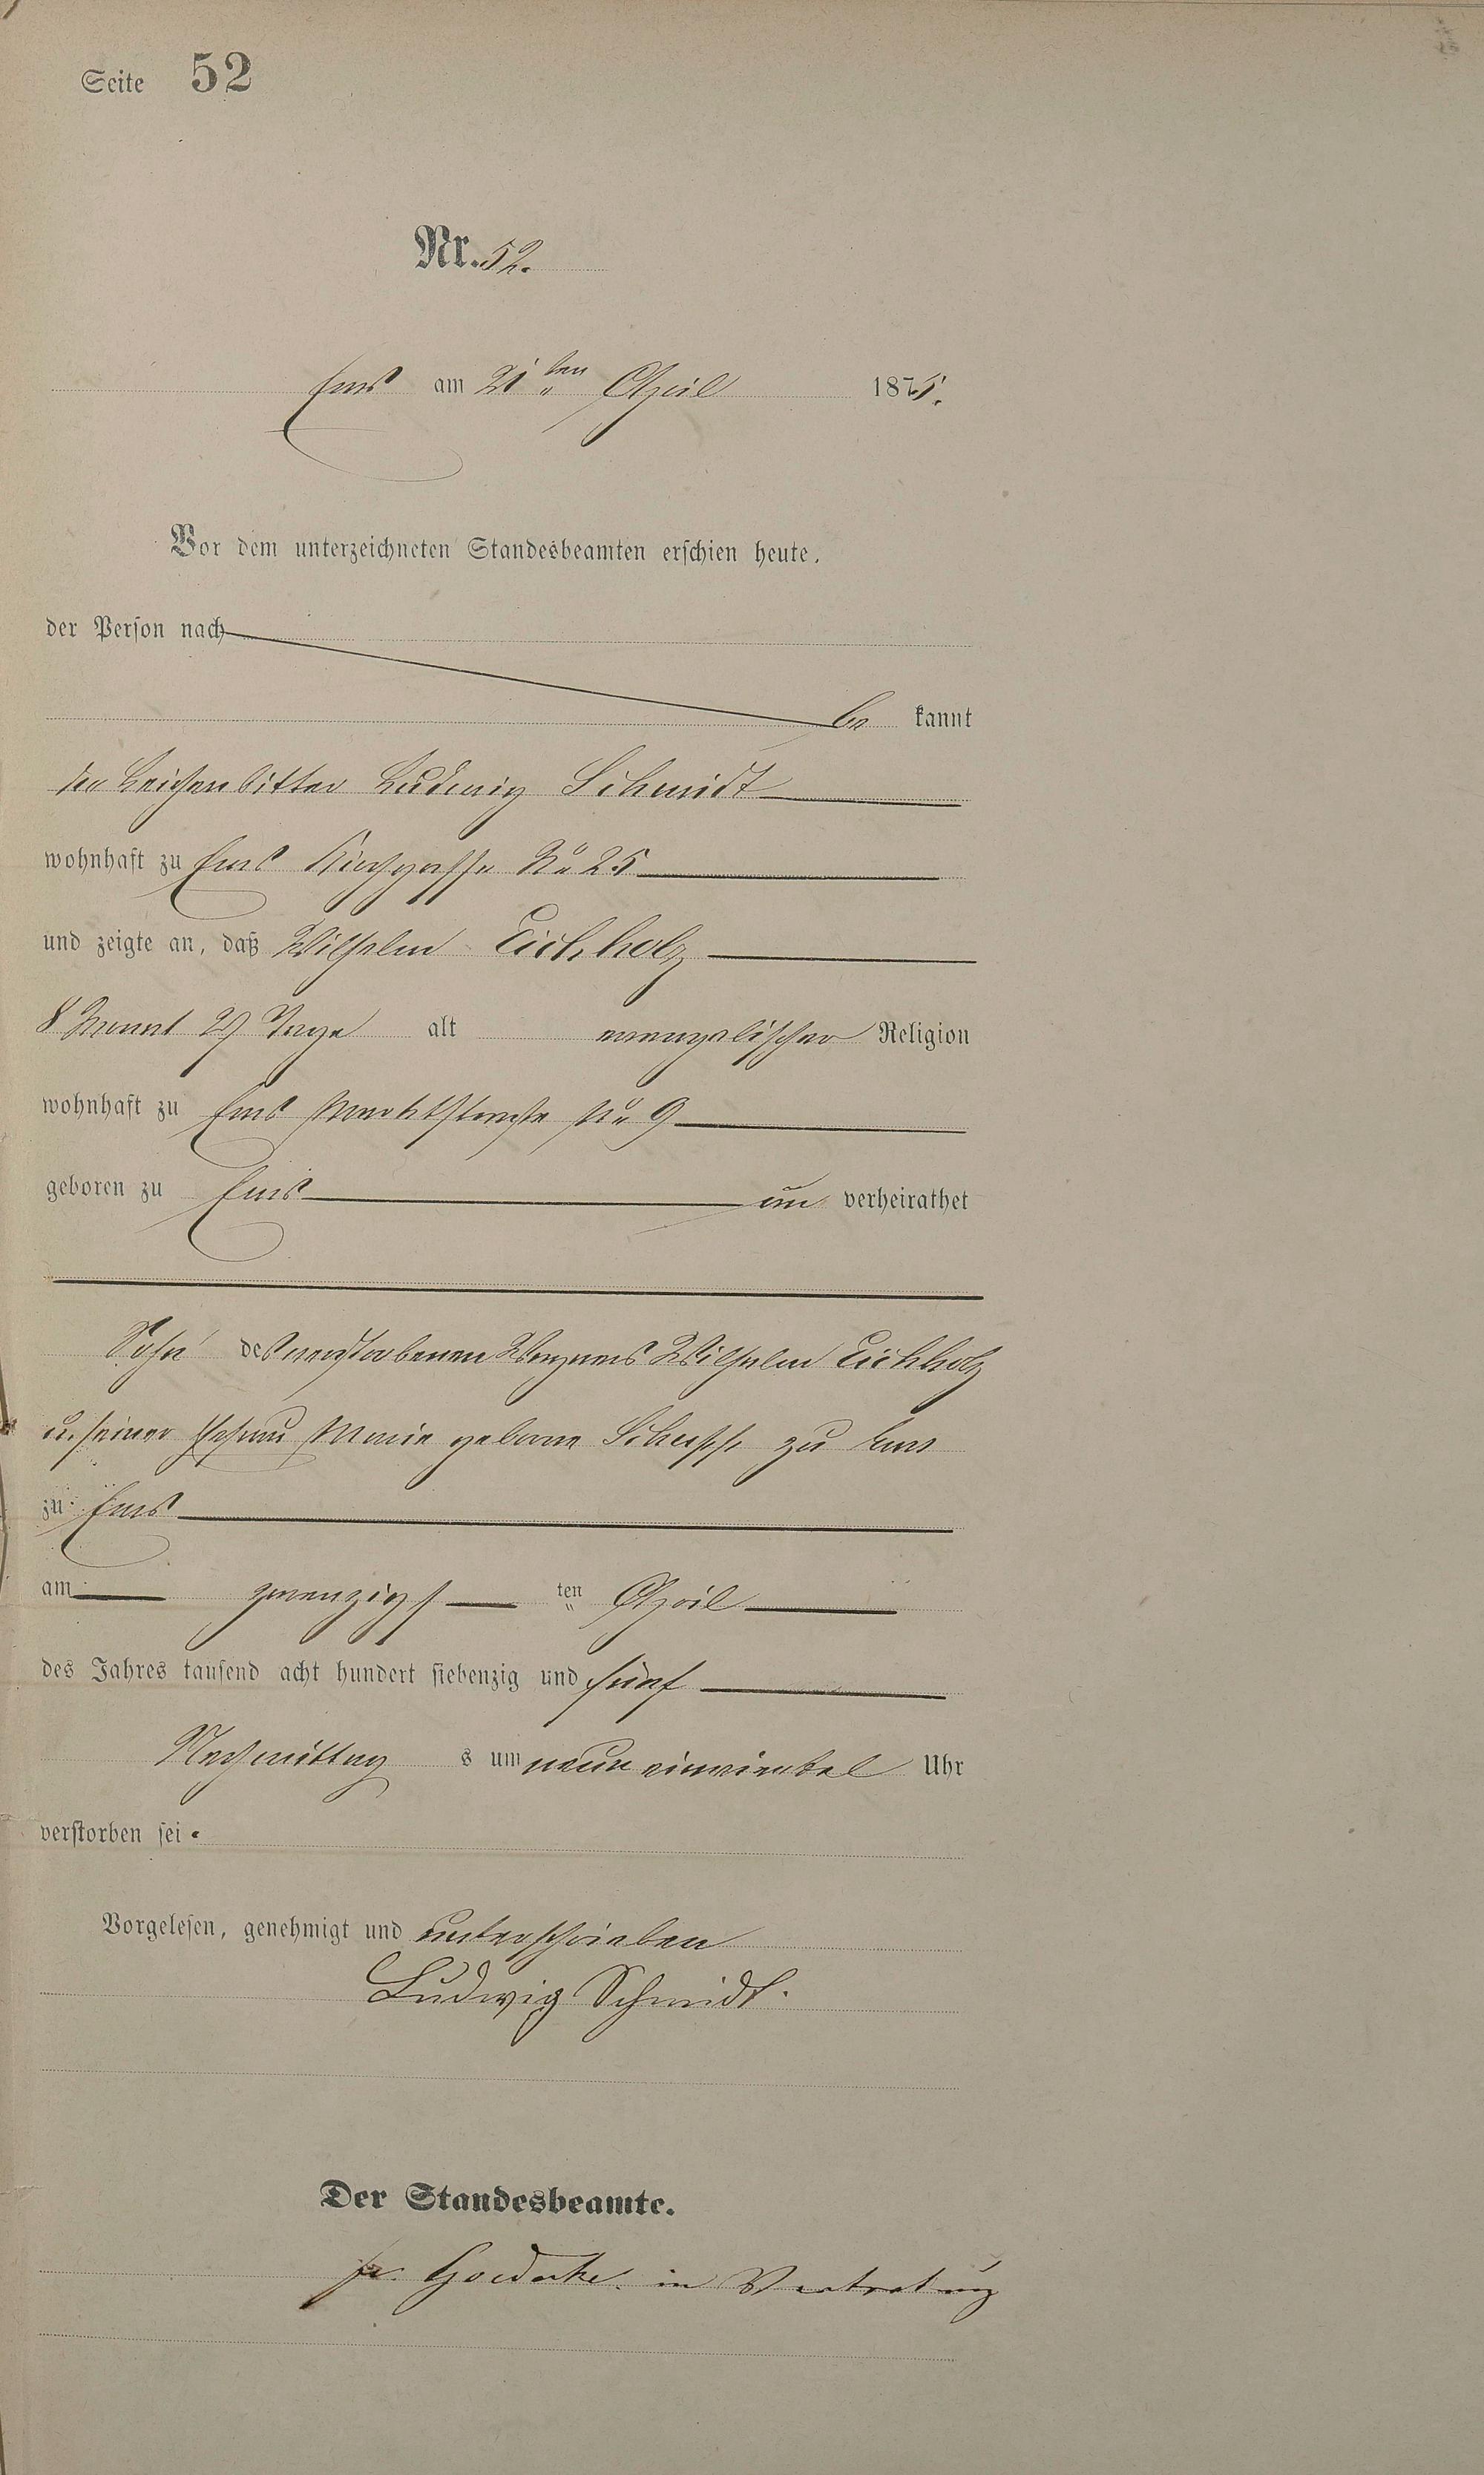 Seite 52
Nr. 52.
Ems am 21ten April 1875.
Vor dem unterzeichneten Standesbeamten erschien heute,
der Person nach
be kannt
der Leichenbitter Ludwig Schmidt
wohnhaft zu Ems Kirchgasse No 25
und zeigte an, daß Wilhelm Eichholz
8 Monat 29 Tage alt evangelischer Religion
wohnhaft zu Ems Marktstraße No 9
geboren zu Ems un verheirathet
Sohn des verstorbenen Wilhelm Eichholz
u. seiner Ehefrau Marie geborne zu Ems
zu Ems
am zwanzigs ten April
des Jahres tausend acht hundert siebenzig und fünf
Nachmittag s um neun einviertel Uhr
verstorben sei.
Vorgelesen, genehmigt und unterschrieben
Ludwig Schmidt.
Der Standesbeamte.
in Vertretung